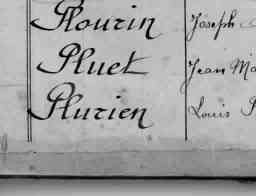 Plourin Joseph
Pluet Jean Ma
Plurien Louis P